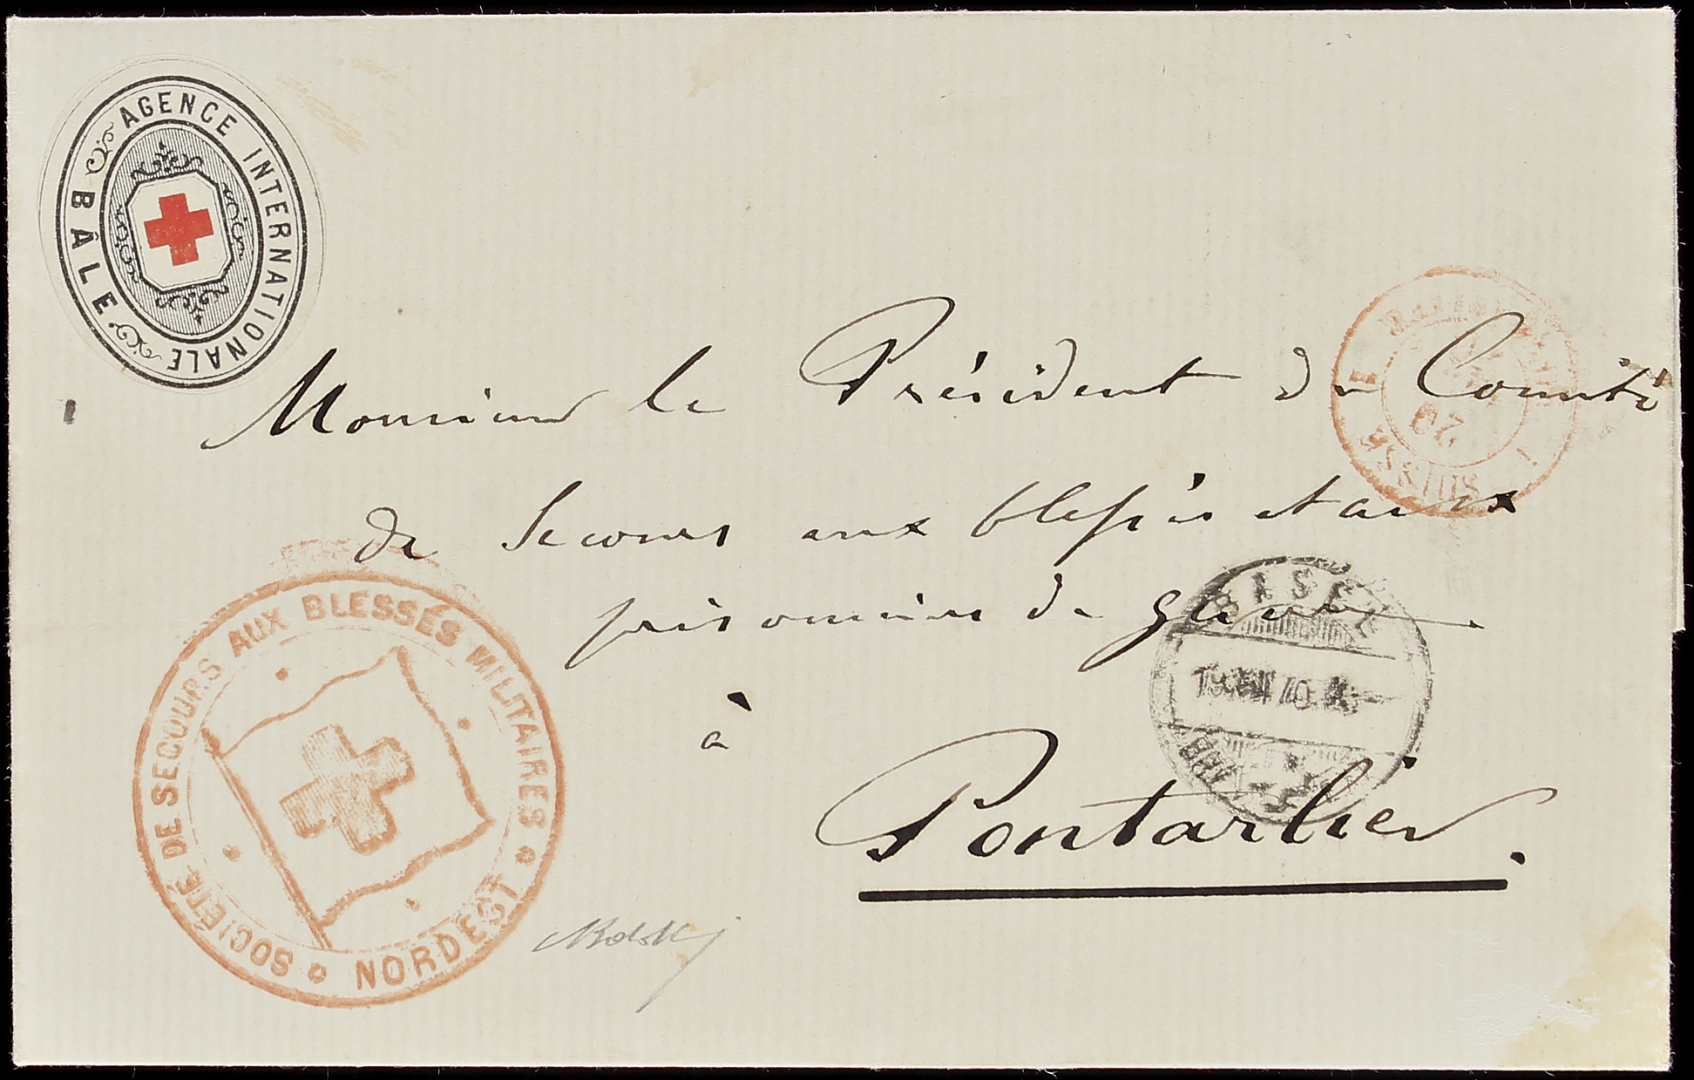 AGENCE INTERNATIONALE
BÂLE
Monsieur le Président du Comité
de Secours aux blessés et aux
prisonniers de guerre
à
Pontarlier.
SUISSE
20
BASEL
SOCIÉTÉ DE SECOURS AUX BLESSÉS MILITAIRES
NORDEST